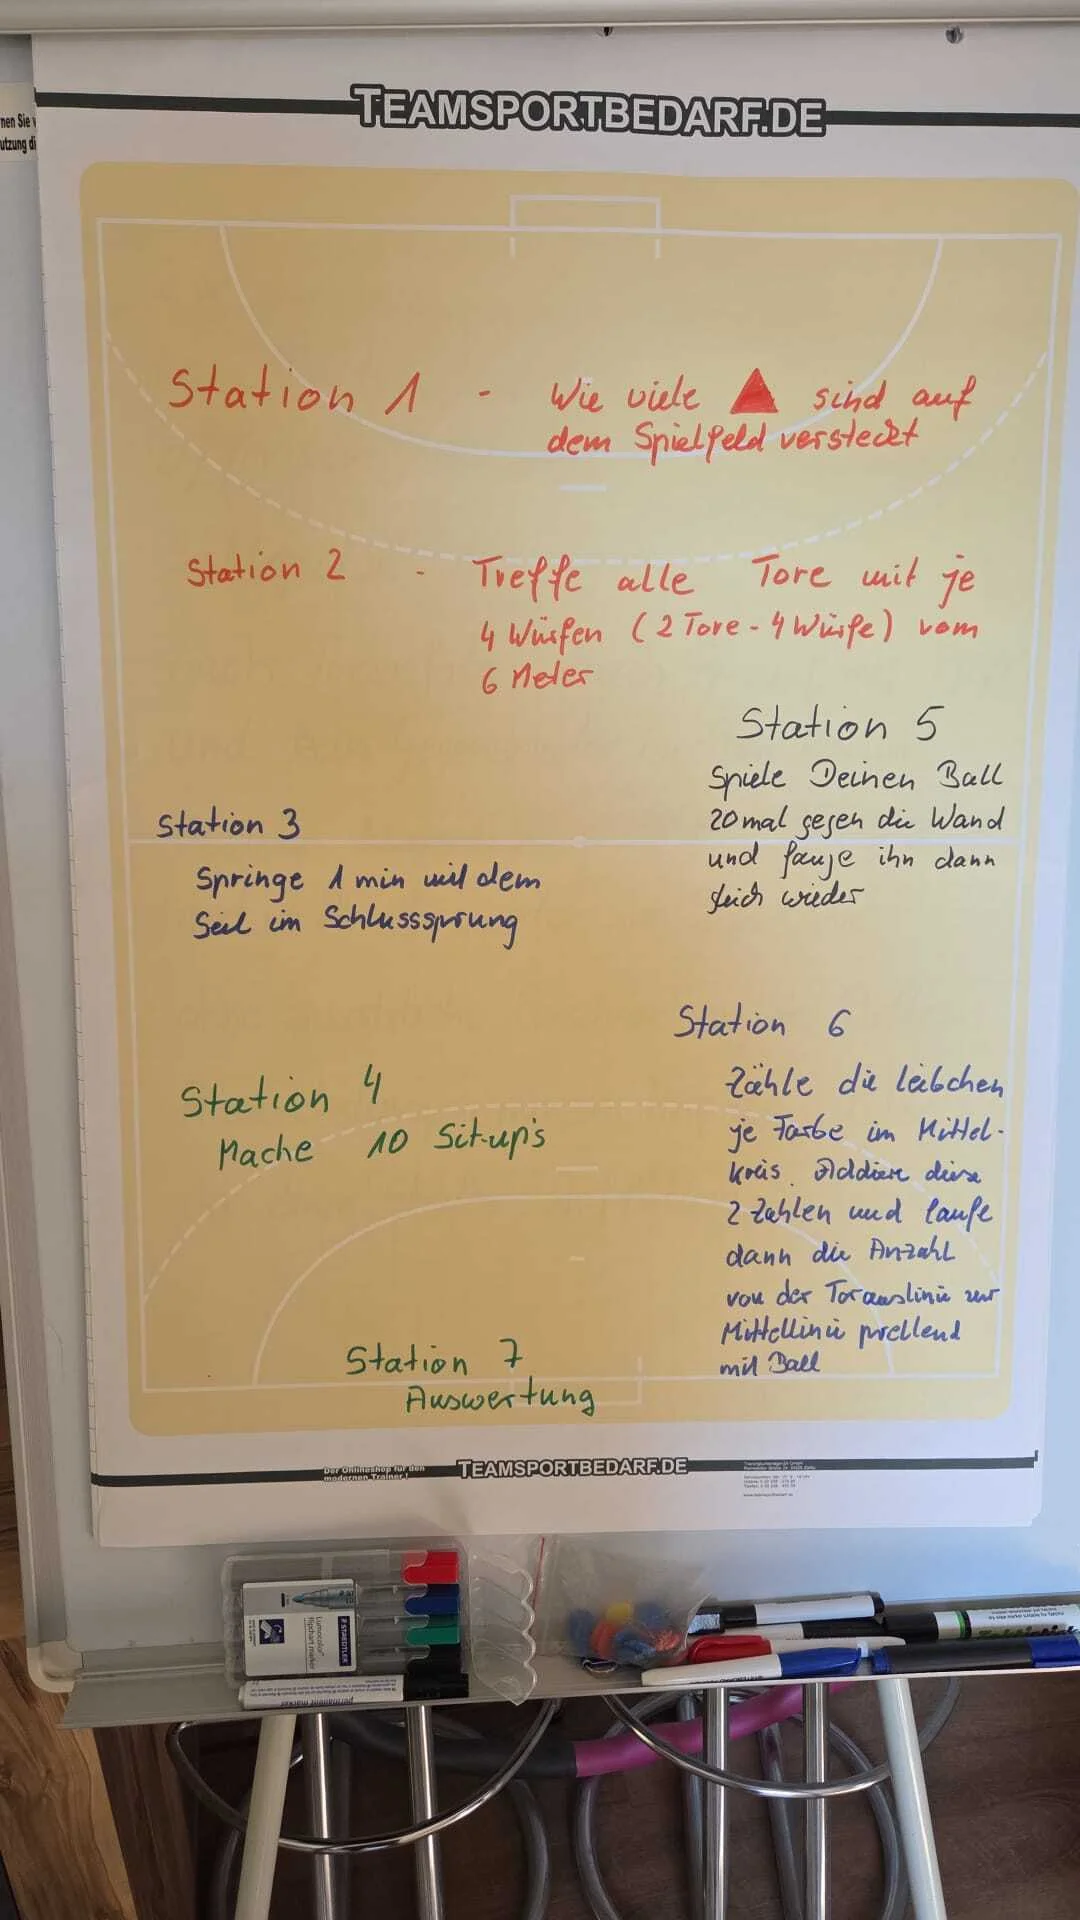 nen Sie
utzung di
TEAMSPORTBEDARF.DE
Station 1 - Wie viele sind auf
dem Spielfeld versteckt
Station 2 - Treffe alle Tore mit je
4 Würfen (2 Tore - 4 Würfe) vom
6 Meter
Station 5
Spiele Deinen Ball
20mal gegen die Wand
und fange ihn dann
gleich wieder
Station 3
Springe 1 min mit dem
Seil im Schlusssprung
Station 6
Zähle die Leibchen
je Farbe im Mittel-
kreis. Addiere diese
2 Zahlen und laufe
dann die Anzahl
von der Torauslinie zur
Mittellinie prellend
mit Ball
Station 4
Mache 10 Sit-up's
Station 7
Auswertung
Der Onlineshop für den
modernen Trainer!
TEAMSPORTBEDARF.DE
STAEDTLER
Lumocolor
flipchart marker
permanent marker